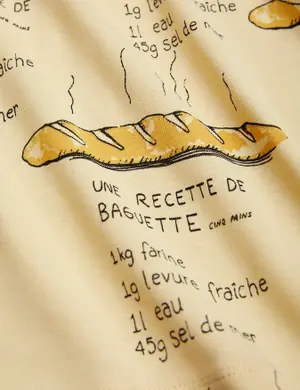 DE
1g levure fraîche
1l eau
45g sel de
aîche
mer
UNE RECETTE DE
BAGUETTE CINQ MINS
1kg farine
1g levure fraîche
1l eau
45g sel de mer